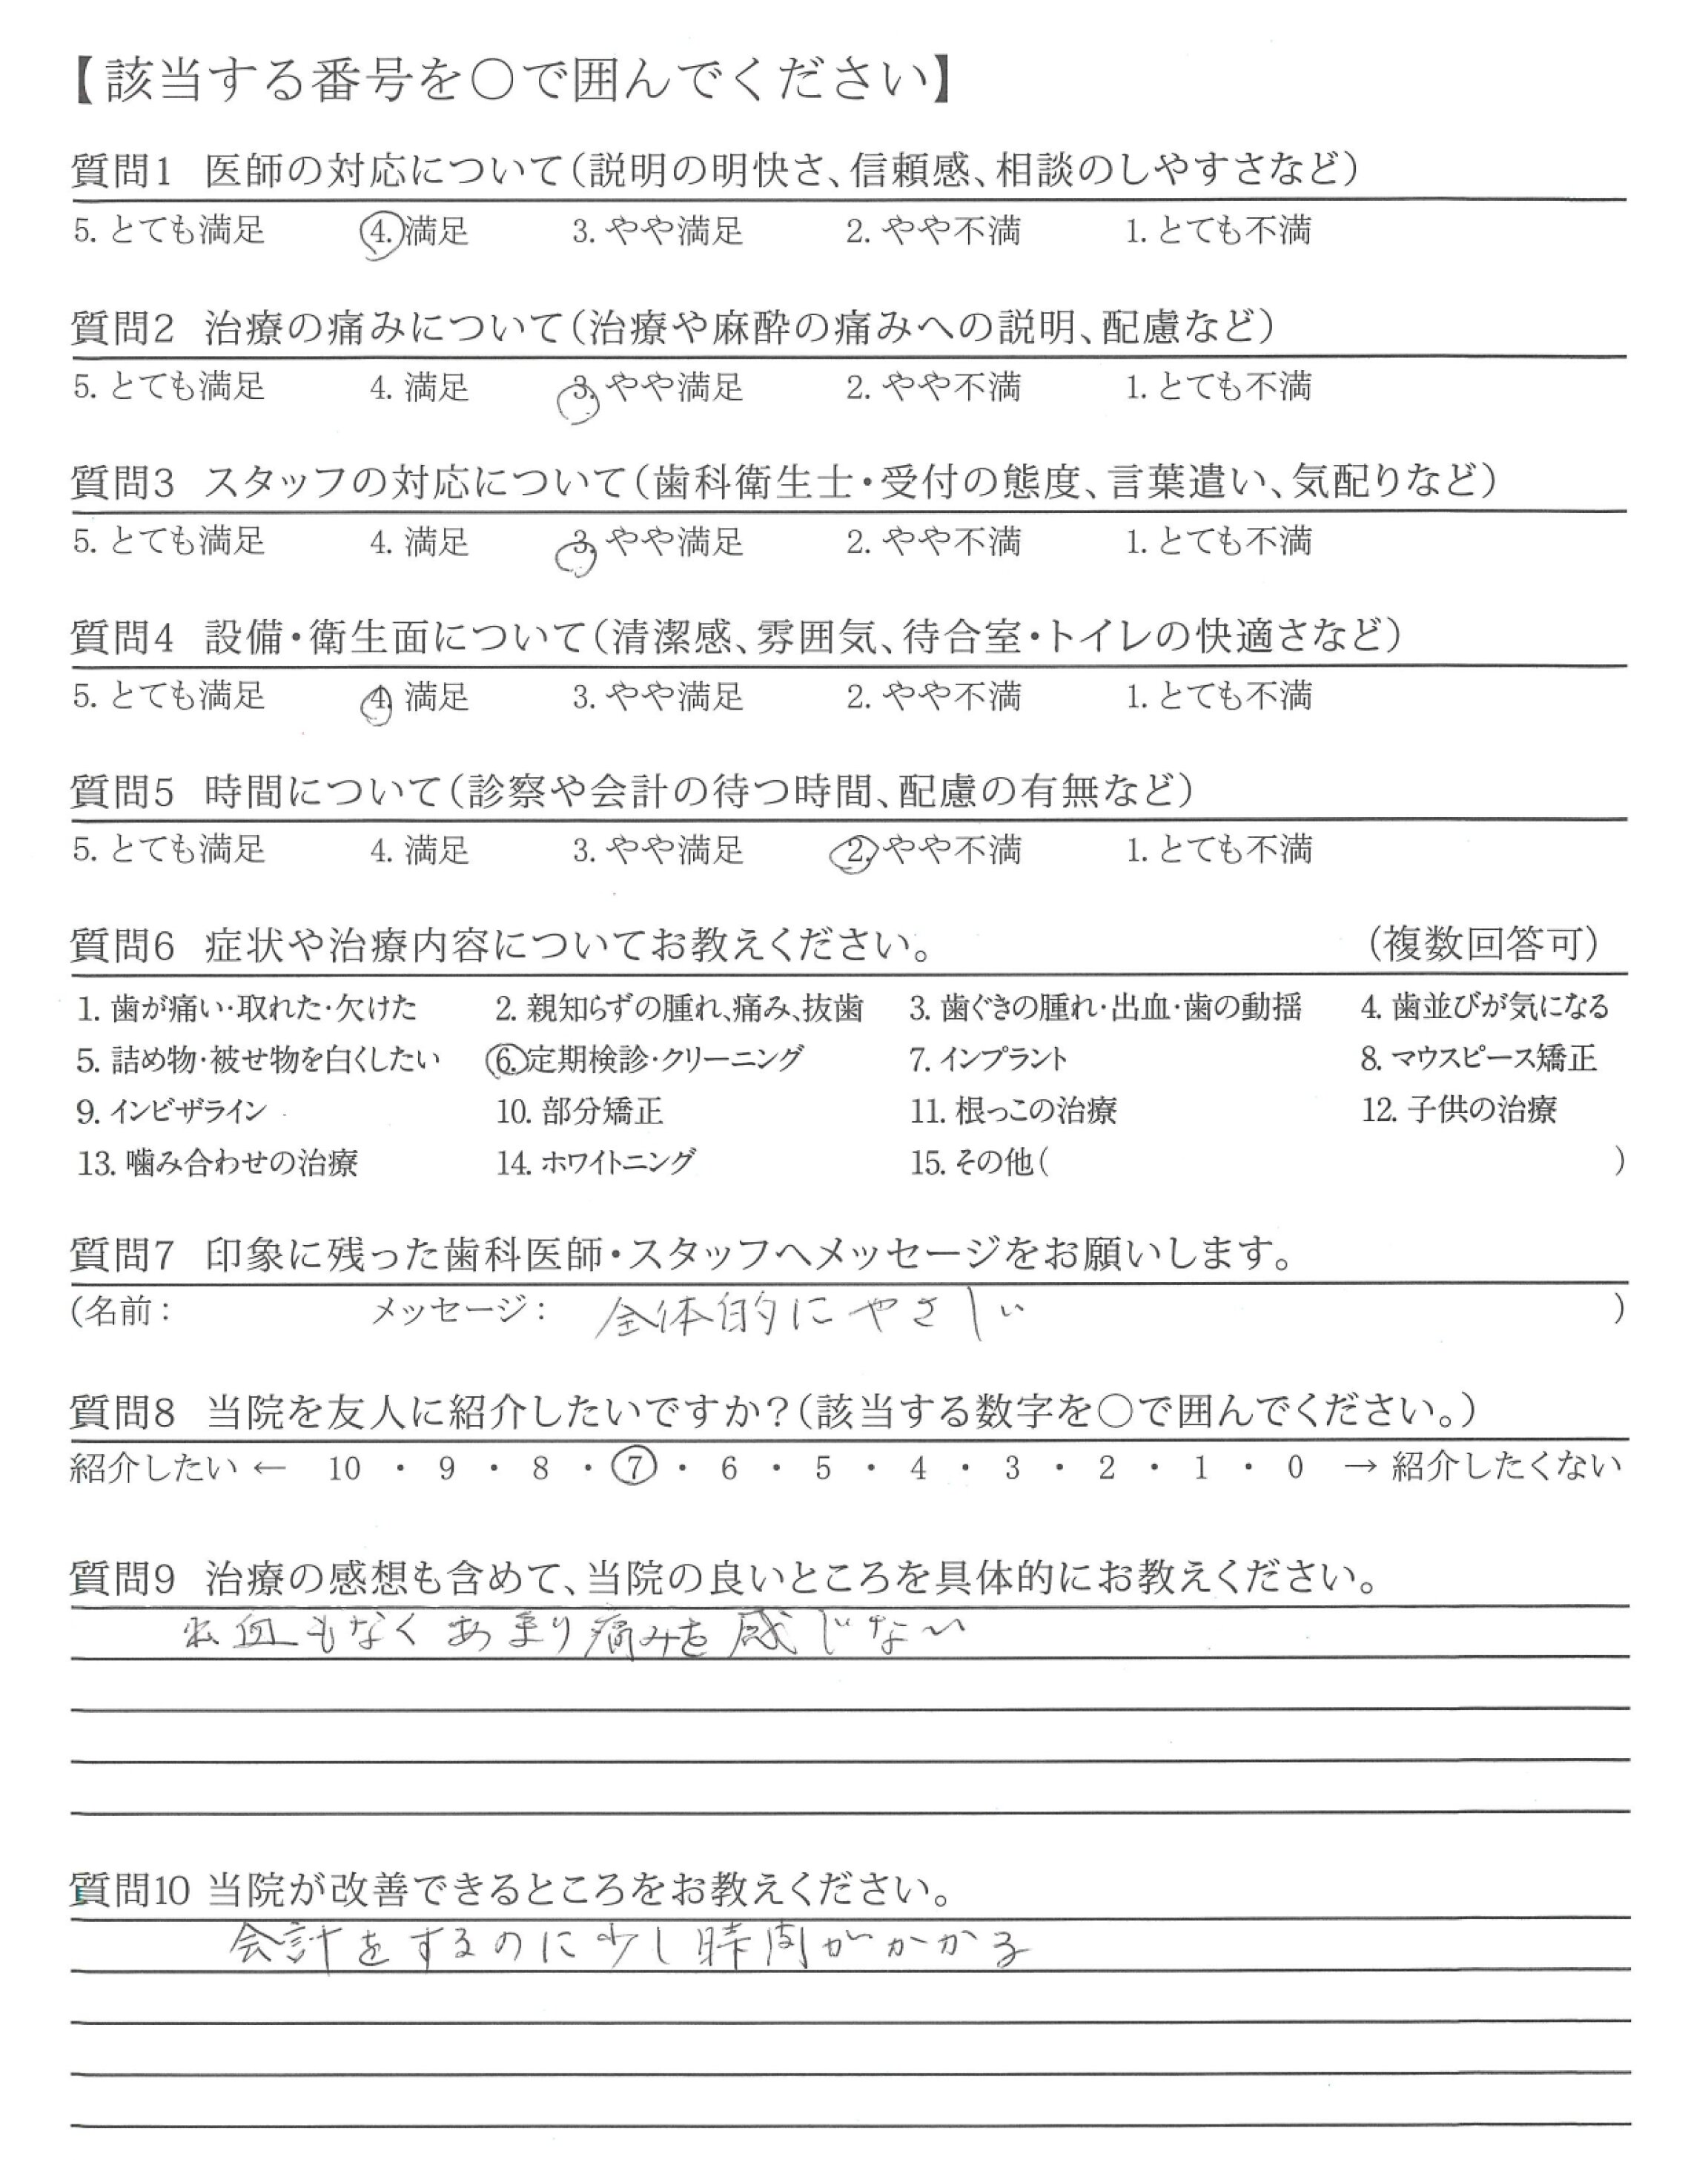 【該当する番号を○で囲んでください】
質問1 医師の対応について(説明の明快さ、信頼感、相談のしやすさなど)
5. とても満足 4. 満足 3. やや満足 2. やや不満 1. とても不満
質問2 治療の痛みについて(治療や麻酔の痛みへの説明、配慮など)
5. とても満足 4. 満足 3. やや満足 2. やや不満 1. とても不満
質問3 スタッフの対応について(歯科衛生士・受付の態度、言葉遣い、気配りなど)
5. とても満足 4. 満足 3. やや満足 2. やや不満 1. とても不満
質問4 設備・衛生面について(清潔感、雰囲気、待合室・トイレの快適さなど)
5. とても満足 4. 満足 3. やや満足 2. やや不満 1. とても不満
質問5 時間について(診察や会計の待つ時間、配慮の有無など)
5. とても満足 4. 満足 3. やや満足 2. やや不満 1. とても不満
質問6 症状や治療内容についてお教えください。 (複数回答可)
1. 歯が痛い・取れた・欠けた 2. 親知らずの腫れ、痛み、抜歯 3. 歯ぐきの腫れ・出血・歯の動揺 4. 歯並びが気になる
5. 詰め物・被せ物を白くしたい 6. 定期検診・クリーニング 7. インプラント 8. マウスピース矯正
9. インビザライン 10. 部分矯正 11. 根っこの治療 12. 子供の治療
13. 噛み合わせの治療 14. ホワイトニング 15. その他( )
質問7 印象に残った歯科医師・スタッフへメッセージをお願いします。
(名前: メッセージ: 全体的にやさしい )
質問8 当院を友人に紹介したいですか?(該当する数字を○で囲んでください。)
紹介したい ← 10 ・ 9 ・ 8 ・ 7 ・ 6 ・ 5 ・ 4 ・ 3 ・ 2 ・ 1 ・ 0 → 紹介したくない
質問9 治療の感想も含めて、当院の良いところを具体的にお教えください。
出血もなくあまり痛みを感じない
質問10 当院が改善できるところをお教えください。
会計をするのに少し時間がかかる